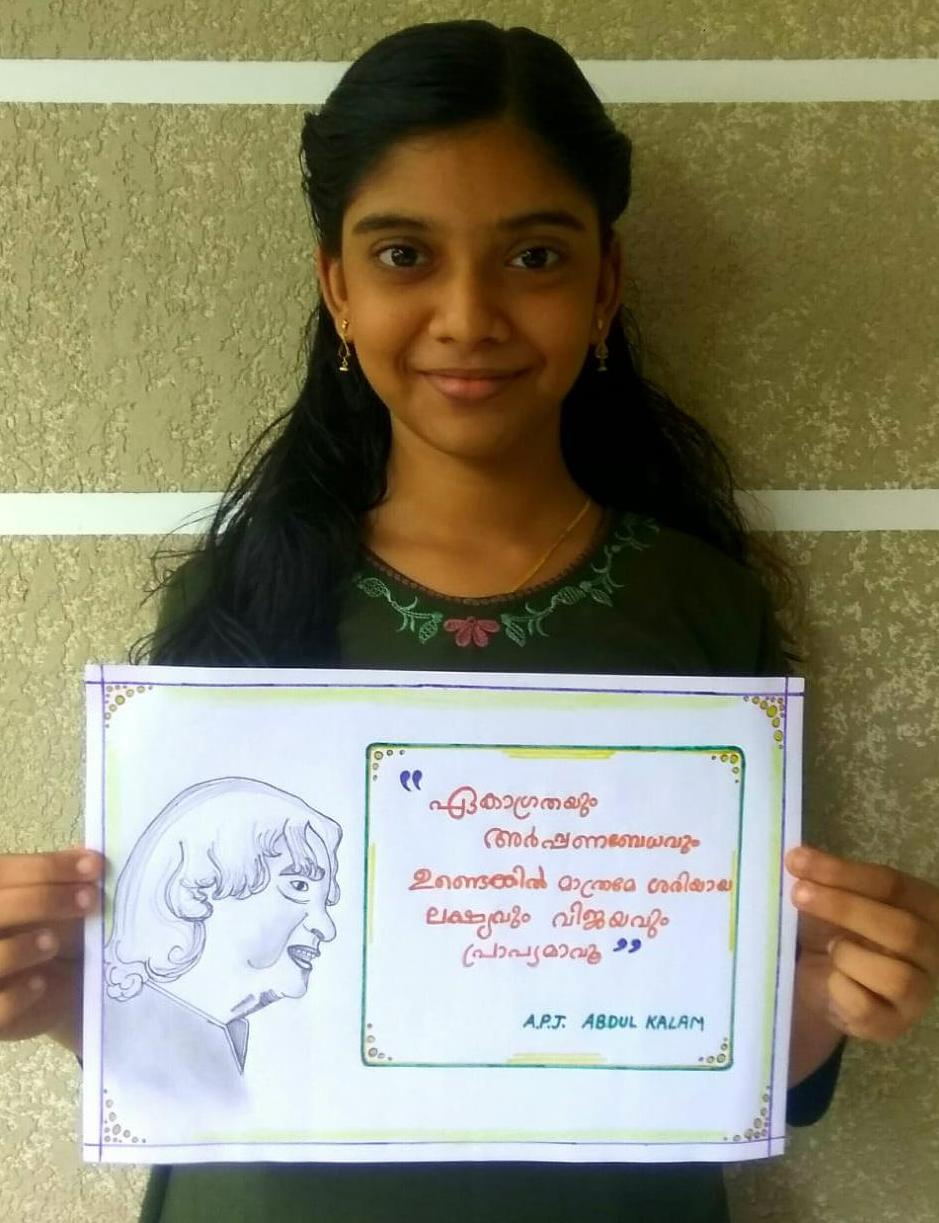 “ഏകാഗ്രതയും
അർപ്പണബോധവും
ഉണ്ടെങ്കിൽ മാത്രമേ ശരിയായ
ലക്ഷ്യവും വിജയവും
പ്രാപ്യമാവൂ”
A.P.J. ABDUL KALAM